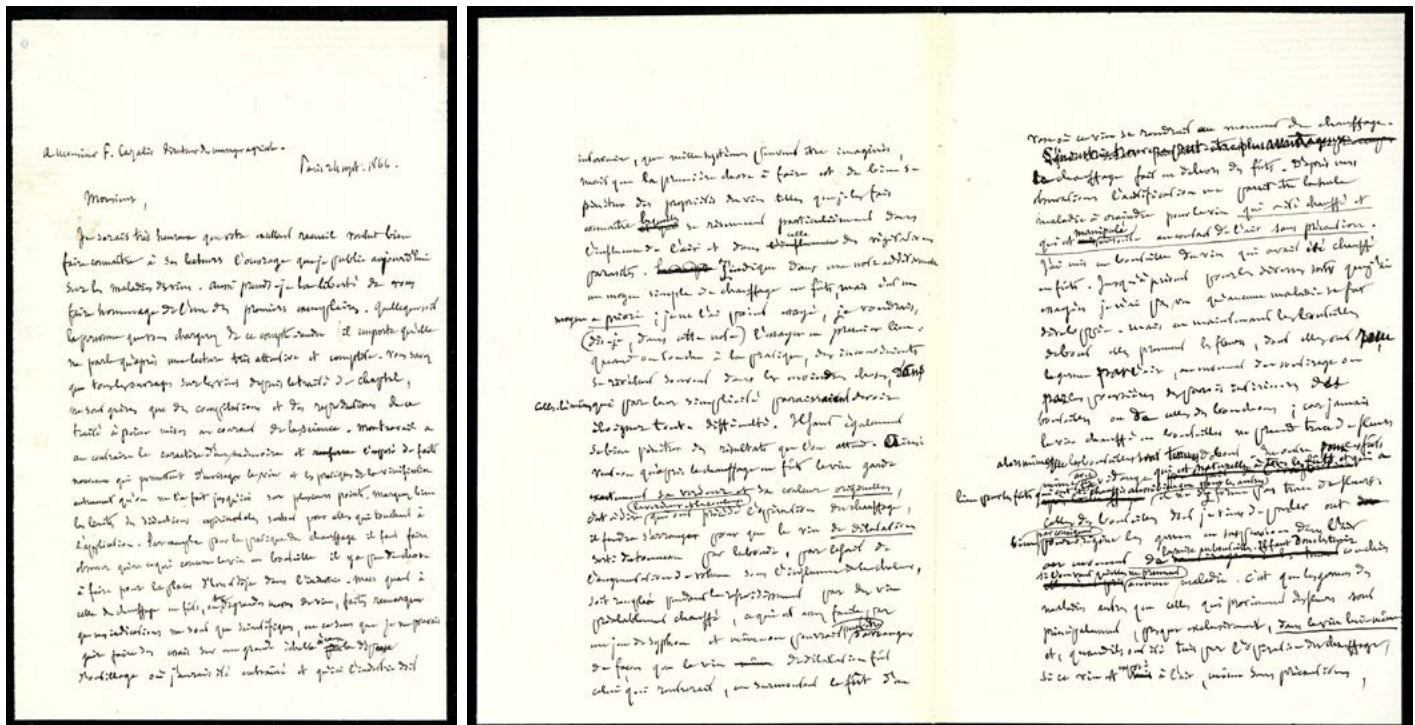 A Monsieur F. Cazalis Directeur du messager agricole.
Paris 24 sept. 1866.
Monsieur,
Je serais très heureux que votre excellent recueil voulut bien
faire connaître à ses lecteurs l'ouvrage que je publie aujourd'hui
sur les maladies des vins. Aussi prends-je la liberté de vous
faire hommage de l'un des premiers exemplaires. Quelle que soit
la personne que vous chargerez de ce compte-rendu il importe qu'elle
ne parle qu'après une lecture très attentive et complète. Vous savez
que tous les ouvrages sur les vins depuis le traité de Chaptal,
ne sont guères que des compilations et des reproductions de ce
traité à peine mises au courant de la science. Montrer
au contraire le caractère d'un mémoire et l'exposé de faits
nouveaux qui permettent d'envisager le vin et les pratiques de la vinification
autrement qu'on ne l'a fait jusqu'ici sur plusieurs points. Marquez bien
les limites des déductions expérimentales surtout pour celles qui touchent à
l'application. Par exemple pour la pratique du chauffage il faut faire
observer qu'en ce qui concerne le vin en bouteille il y a peu de chose
à faire pour la placer d'hors et déjà dans l'industrie. Mais quant à
celle du chauffage en fûts, en grandes masses de vin, faites remarquer
que mes indications ne sont que scientifiques, en ce sens que je ne pouvais
guère faire des essais sur une grande échelle à cause des dépenses
d'outillage où j'aurais été entraîné et qu'ici l'industrie doit
intervenir, que mille systèmes peuvent être imaginés,
mais que la première chose à faire est de bien se
pénétrer des propriétés du vin telles que je les fais
connaître lesquelles se résument particulièrement dans
l'influence de l'air et dans celle des végétations
parasites. J'indique dans une note additionnelle
un moyen simple de chauffage en fûts, mais c'est un
moyen a priori ; je ne l'ai point essayé, je voudrais,
(dis-je, dans cette note) l'essayer en premier lieu.
Quand on touche à la pratique, des inconvénients
se révèlent souvent dans les moindres choses, dans
celles-là même qui par leur simplicité paraissaient devoir
éloigner toute difficulté. Il faut également
se bien pénétrer des résultats que l'on attend. Ainsi
veut-on qu'après le chauffage en fûts le vin garde
exactement sa verdeur et sa couleur originelles,
c'est à dire la verdeur et la couleur qui ont précédé l'opération du chauffage,
il faudra s'arranger pour que le vin de dilatation
sorti du tonneau par la bonde, par le fait de
l'augmentation de volume sous l'influence de la chaleur,
soit remplacé pendant le refroidissement par du vin
préalablement chauffé, ce qui est assez facile par
un jeu de syphon et même on pourrait peut-être s'arranger
de façon que le vin de dilatation fût
celui qui rentrerait, en surmontant le fût d'un
vase où ce vin se rendrait au moment du chauffage.
Le chauffage fait en dehors des fûts. D'après mes
observations l'acétification me paraît être la seule
maladie à craindre pour le vin qui a été chauffé et
qui est manipulé au contact de l'air sans précaution.
J'ai mis en bouteilles du vin qui avait été chauffé
en fûts. Jusqu'à présent pour les diverses sortes que j'ai
essayées je n'ai pas vu qu'aucune maladie se fut
développée. Mais en maintenant les bouteilles
debout elles prennent les fleurs, dont elles ont reçu
le germe par l'air, au moment du soutirage ou
par les poussières des parois intérieures des
bouteilles ou de celles des bouchons ; car jamais
le vin chauffé en bouteilles ne prend trace de fleurs
alors même que les bouteilles sont tenues debout
avec vidange
il ne se forme pas trace de fleurs.
Celles des bouteilles dont je viens de parler ont
bien par conséquent pour origine les germes en suspension dans l'air
au moment de la mise en bouteilles. Il faut donc les tenir couchées
si l'on veut qu'elles ne prennent
aucune maladie. C'est que les germes des
maladies autres que celles qui proviennent des fleurs sont
principalement, presque exclusivement, dans le vin lui-même
et, quand ils ont été tués par l'opération du chauffage,
si ce vin est remis à l'air, même sans précautions,